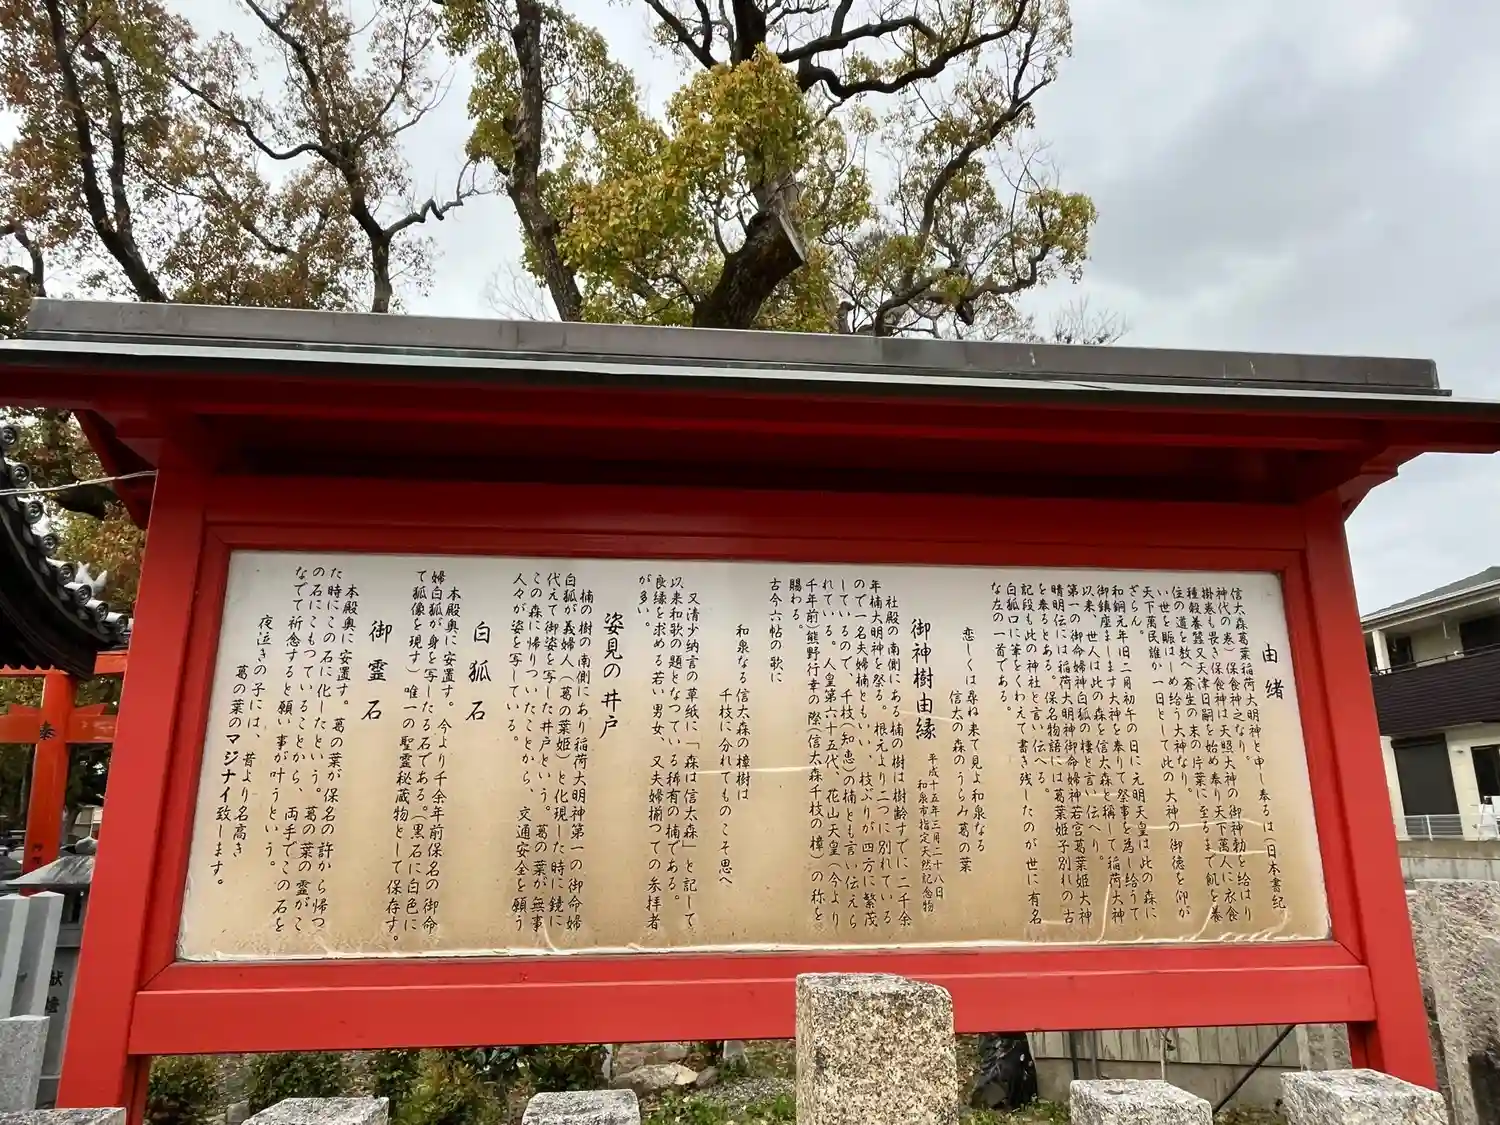 由緒
信太森葛葉稲荷大明神と申し奉るは(日本書紀
神代の巻)保食神之なり。
掛巻も畏き保食神は天照大神の御神勅を給はり
種穀養蚕又天津日嗣を始め奉り天下萬人に衣食
住の道を教へ蒼生の末の片葉に至るまで飢を養
い世を賑はしめ給う大神なり。
天下萬民誰か一日として此の大神の御徳を仰が
ざらん。
和銅元年旧二月初午の日に元明天皇は此の森に
御鎮座まします大神を奉りて祭事を為し給うて
以来、世人は此の森を信太森と称して稲荷大神
第一の御命婦神白狐の棲と言い伝へり。
晴明伝には稲荷大明神御命婦神若宮葛葉姫大神
を奉るとある。保名物語には葛葉姫子別れの古
記段も此の神社と言い伝へる。
白狐口に筆をくわえて書き残したのが世に有名
な左の一首である。
恋しくは尋ね来て見よ和泉なる
信太の森のうらみ葛の葉
御神樹由縁
平成十五年三月二十八日
和泉市指定天然記念物
社殿の南側にある楠の樹は樹齢すでに二千余
年楠大明神を祭る。根元より二つに別れている
ので一名夫婦楠ともいい、枝ぶりが四方に繁茂
しているので、千枝(知恵)の楠とも言い伝えら
れている。人皇第六十五代、花山天皇(今より
千年前)熊野行幸の際(信太森千枝の樟)の称を
賜わる。
古今六帖の歌に
和泉なる信太森の樟樹は
千枝に分れてものこそ思へ
又清少納言の草紙に「森は信太森」と記して
以来和歌の題となっている稀有の楠である。
良縁を求める若い男女、又夫婦揃っての参拝者
が多い。
姿見の井戸
楠の樹の南側にあり稲荷大明神第一の御命婦
白狐が義婦人(葛の葉姫)と化現した時に鏡に
代えて御姿を写した井戸という。葛の葉が無事
この森に帰りついたことから、交通安全を願う
人々が姿を写している。
白狐石
本殿奥に安置す。今より千余年前保名の御命
婦白狐が身を写したる石である。(黒石に白色に
て狐像を現す)唯一の聖霊秘蔵物として保存す。
御霊石
本殿奥に安置す。葛の葉が保名の許から帰っ
た時にこの石に化したという。葛の葉の霊がこ
の石にこもっていることから、両手でこの石を
なでて祈念すると願い事が叶うという。
夜泣きの子には、昔より名高き
葛の葉のマジナイ致します。
奉
献